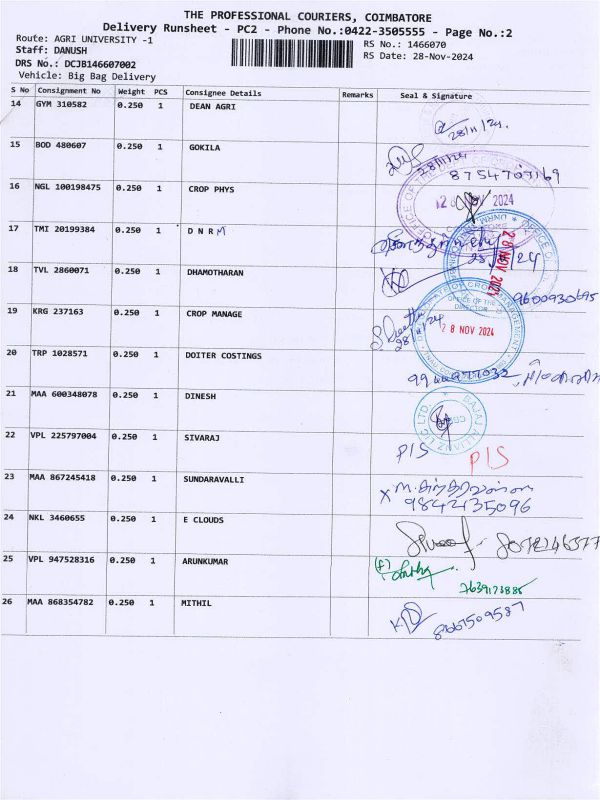 THE PROFESSIONAL COURIERS, COIMBATORE
Delivery Runsheet - PC2 - Phone No.:0422-3505555 - Page No.:2
Route: AGRI UNIVERSITY -1
RS No.: 1466070
Staff: DANUSH
RS Date: 28-Nov-2024
DRS No.: DCJB146607002
Vehicle: Big Bag Delivery
S No Consignment No Weight PCS Consignee Details Remarks Seal & Signature
14 GYM 310582 0.250 1 DEAN AGRI
28/11/24.
15 BOD 480607 0.250 1 GOKILA
28/11/24
8754707169
16 NGL 100198475 0.250 1 CROP PHYS
28 NOV 2024
17 TMI 20199384 0.250 1 D N R M
28 NOV 2024
18 TVL 2860071 0.250 1 DHAMOTHARAN
9600930695
19 KRG 237163 0.250 1 CROP MANAGE
28/11/24
OFFICE OF THE DIRECTOR
28 NOV 2024
20 TRP 1028571 0.250 1 DOITER COSTINGS
21 MAA 600348078 0.250 1 DINESH
BAJAJ ALLIANZ LIC LTD.
22 VPL 225797004 0.250 1 SIVARAJ
P/S P/S
23 MAA 867245418 0.250 1 SUNDARAVALLI
9842135096
24 NKL 3460655 0.250 1 E CLOUDS
25 VPL 947528316 0.250 1 ARUNKUMAR
7639173885
26 MAA 868354782 0.250 1 MITHIL